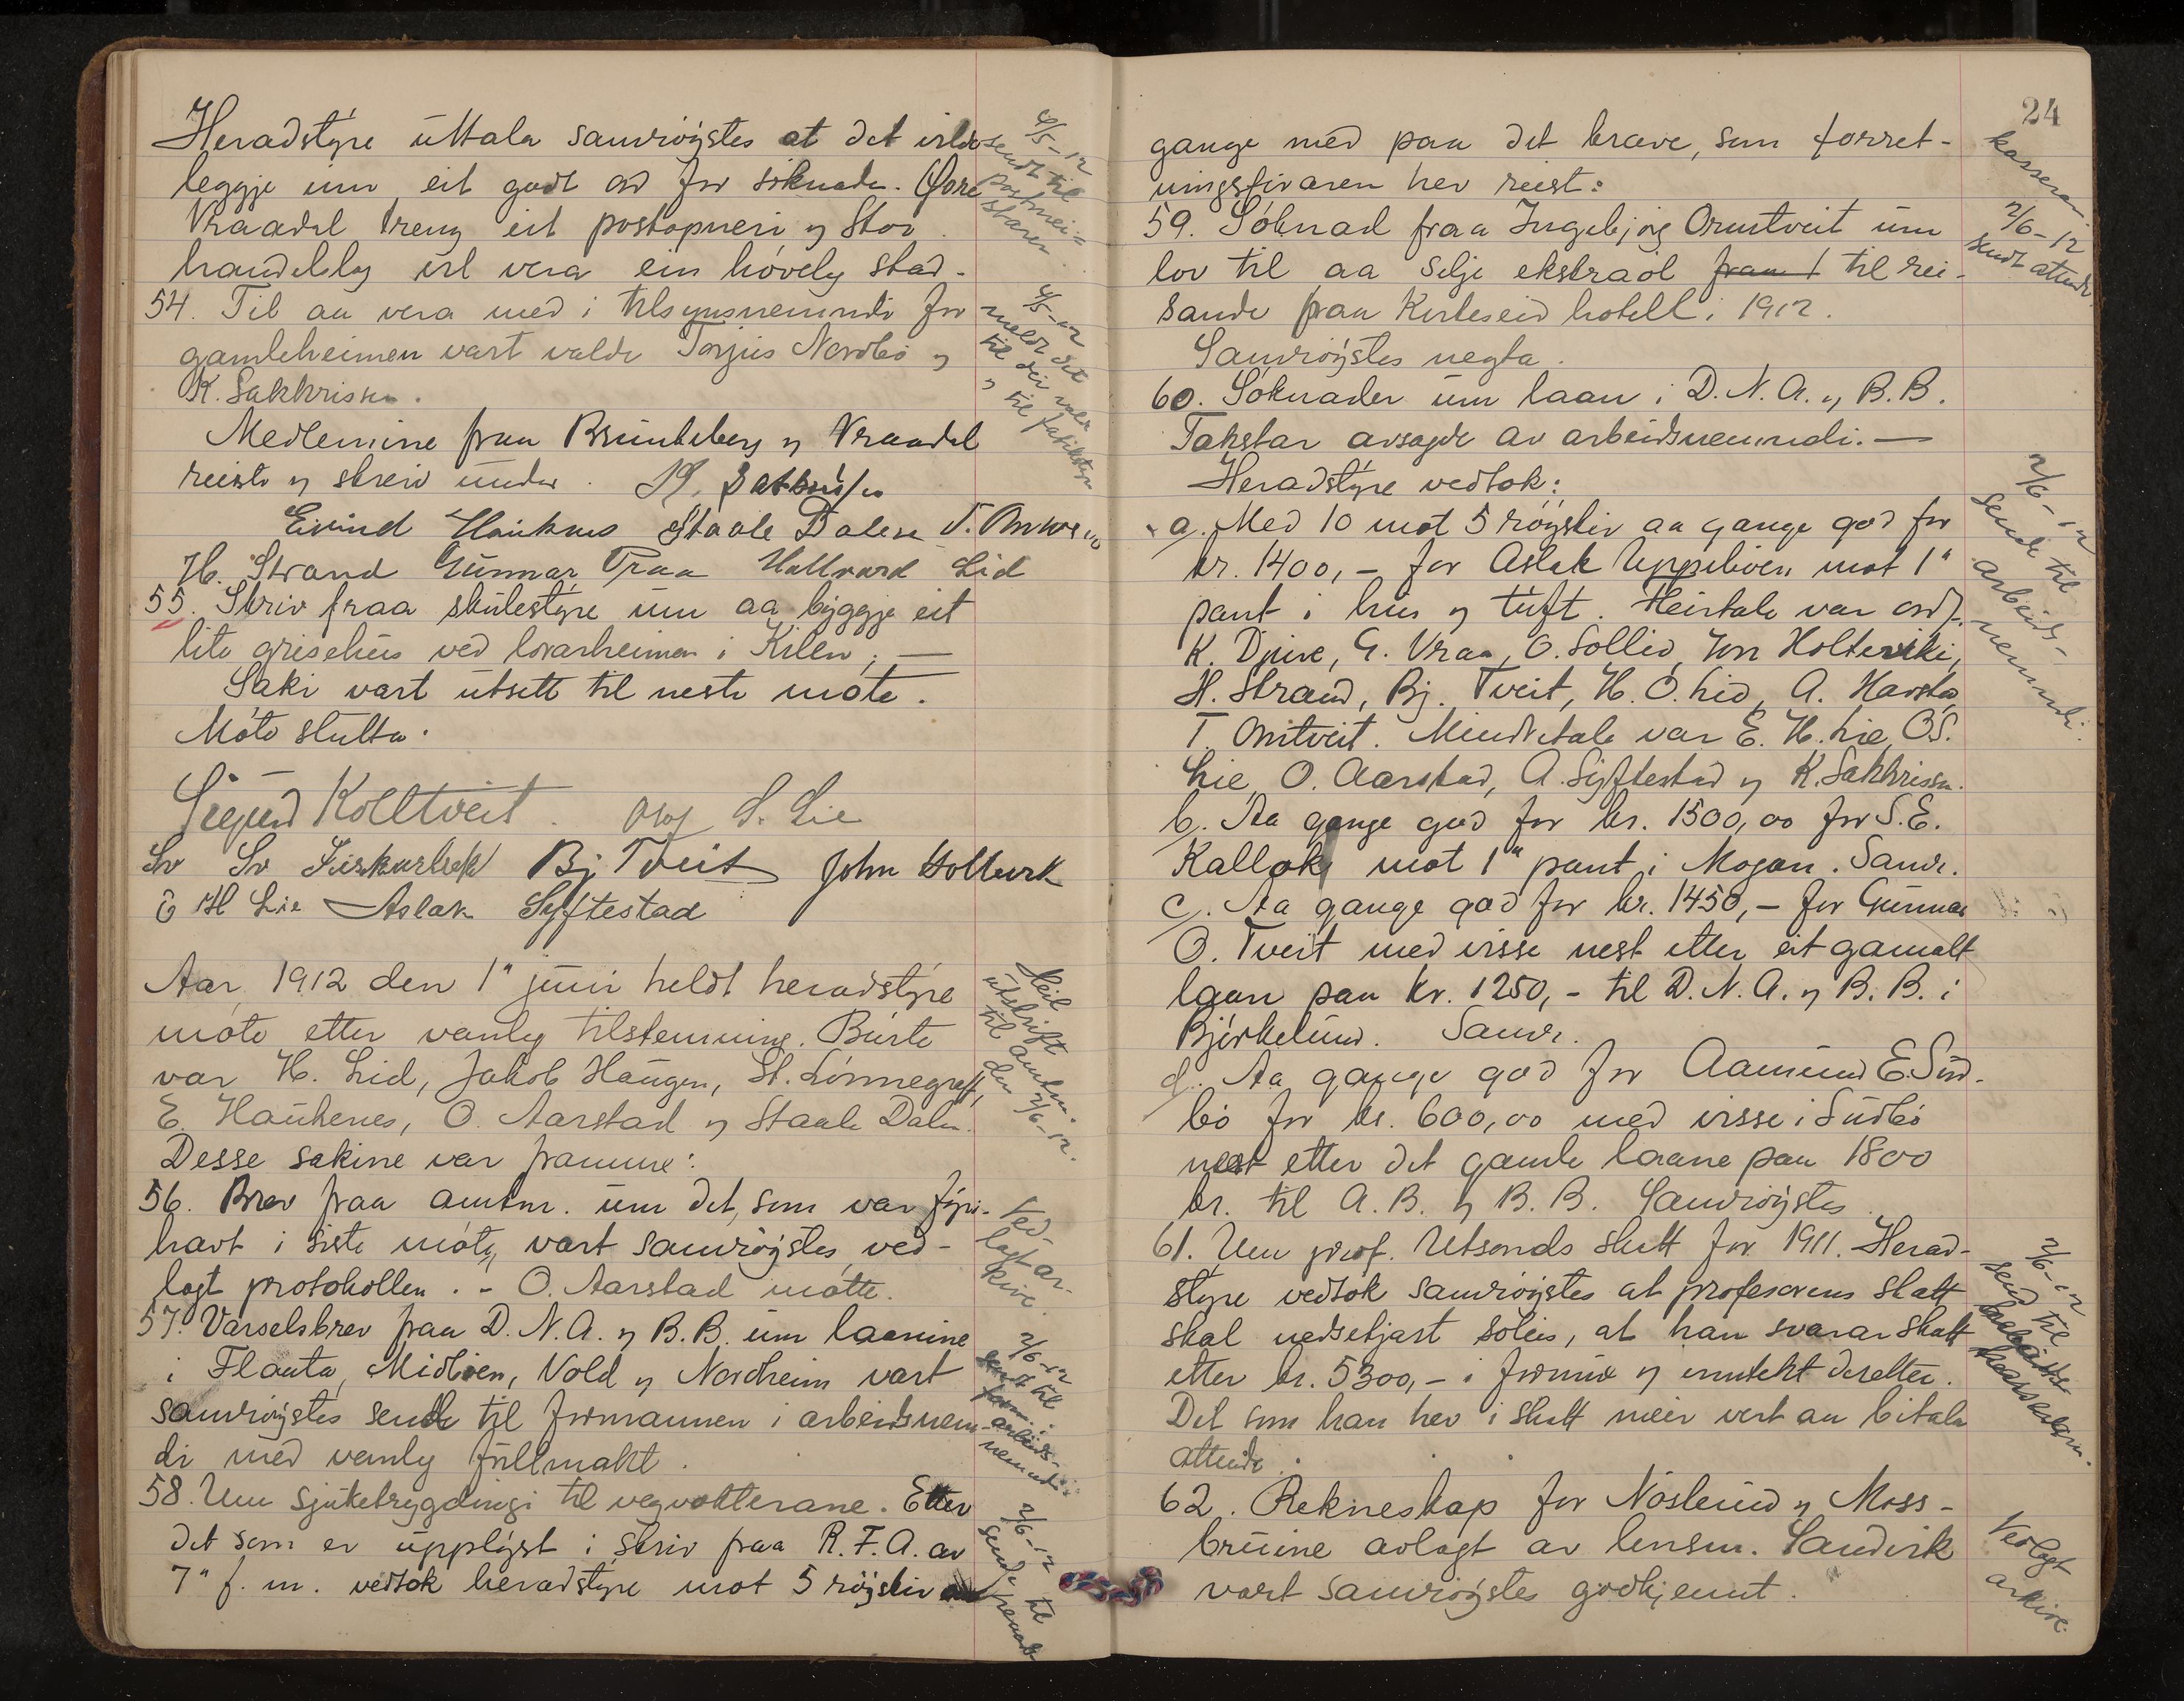 Heradstyre uttala samröystes at det vilde
leggje inn eit godt ord for söknade. Övre
Vraadal treng eit postopneri og Stor
handelslag vil vera ein höveleg stad.
54. Til aa vera med i tilsynsnemndi for
gamleheimen vart valde Torjus Nordbö og
K. Sakkrisson.
Medlemine fraa Brunkeberg og Vraadal
reiste og skreiv under. K. Sakkrisson
Eivind Haukenes Staale Dalen T. Omtveit
H. Strand Gunnar Vraa Hallvard Lid
55. Skriv fraa skulestyre um aa byggje eit
lite grisehus ved lærarheimen i Kilen; —
Saki vart utsett til neste möte.
Möte slutta.
Sigurd Kolltveit. Olav S. Lie
Sv Sv Bj Tveit John Holtevik
E H Lie Aslak Syftestad
Aar 1912 den 1" juni heldt heradstyre
möte etter vanleg tilstemning. Burte
var H. Lid, Jakob Haugen, St. Lönnegraff,
E. Haukenes, O. Aarstad og Staale Dalen.
Desse sakine var framme:
56. Brev fraa amtm. um det, som var fyri-
havt i siste möte, vart samröystes ved-
lagt protokollen. - O. Aarstad mötte.
57. Varselsbrev fraa D. N. A. og B. B. um laanine
i Flauta, Midböen, Vold og Nordheim vart
samröystes sende til formannen i arbeidsnemn-
di med vanleg fullmakt.
58. Um sjuketrygdingi til vegvaktarane. Etter
det som er upplyst i skriv fraa R. F. A. av
7" f. m. vedtok heradstyre mot 5 röyster
4/5-12
sendt til
postmei-
staren
4/5-12
meldt det
til dei valde
og til fatikstyre
Heil
utskrift
til amtm.
den 2/6-12.
Ved-
lagt ar-
kive.
2/6-12
sendt til
form. i
arbeids-
nemndi
2/6-12
send til
24
gange med paa det kravet, som forret-
ningsföraren hev reist:
59. Söknad fraa Ingebjörg Omtveit um
lov til aa selje ekstraöl fraa til rei-
sande fraa Kviteseid hotell i 1912.
Samröystes negta.
60. Söknader um laan i D. N. A. og B. B.
Takstar avsagde av arbeidsnemndi. —
Heradstyre vedtok:
a. Med 10 mot 5 röyster aa gange god for
kr. 1400,- for Aslak Uppeböen mot 1"
pant i hus og tuft. Fleirtale var ordf.
K. Djuve, G. Vraa, O. Sollid, Jon Holteviki,
H. Strand, Bj. Tveit, H. O. Lid, A. Havstad
T. Omtveit. Mindretale var E. H. Lie, O.S.
Lie, O. Aarstad, A. Syftestad og K. Sakkrisson.
b. Aa gange god for kr. 1500,00 for S. E.
Kallok mot 1" pant i Mogan. Samr.
c. Aa gange god for kr. 1450,- for Gunnar
O. Tveit med visse nest etter eit gamalt
laan paa kr. 1250,- til D. N. A. og B. B. i
Björkelund. Samr.
d. Aa gange god for Aamund E. Sud-
bö for kr. 600,00 med visse i Sudbö
nest etter det gamle laane paa 1800
kr. til A. B. og B. B. Samröystes.
61. Um prof. Utsonds skatt for 1911. Herad-
styre vedtok samröystes at profesorens skatt
skal nedsetjast soleis, at han svarar skatt
etter kr. 5300,- i formue og inntekt deretter.
Det som han hev i skatt meir vert aa bitala
attende.
62. Rekneskap for Nöslund og Moss-
bruine avlagt av lensm. Sandvik
vart samröystes godkjennt.
kasseraren
2/6-12
sendt attende
2/6-12
sendt til
arbeids-
nemndi.
2/6-12
send til
Vedlagt
arkive.